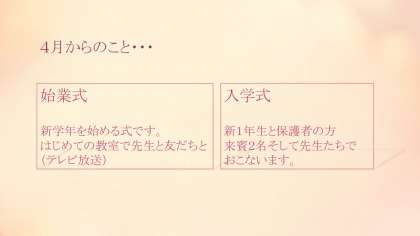 ４月からのこと・・・
始業式
新学年を始める式です。
はじめての教室で先生と友だちと
（テレビ放送）
入学式
新1年生と保護者の方
来賓2名そして先生たちで
おこないます。